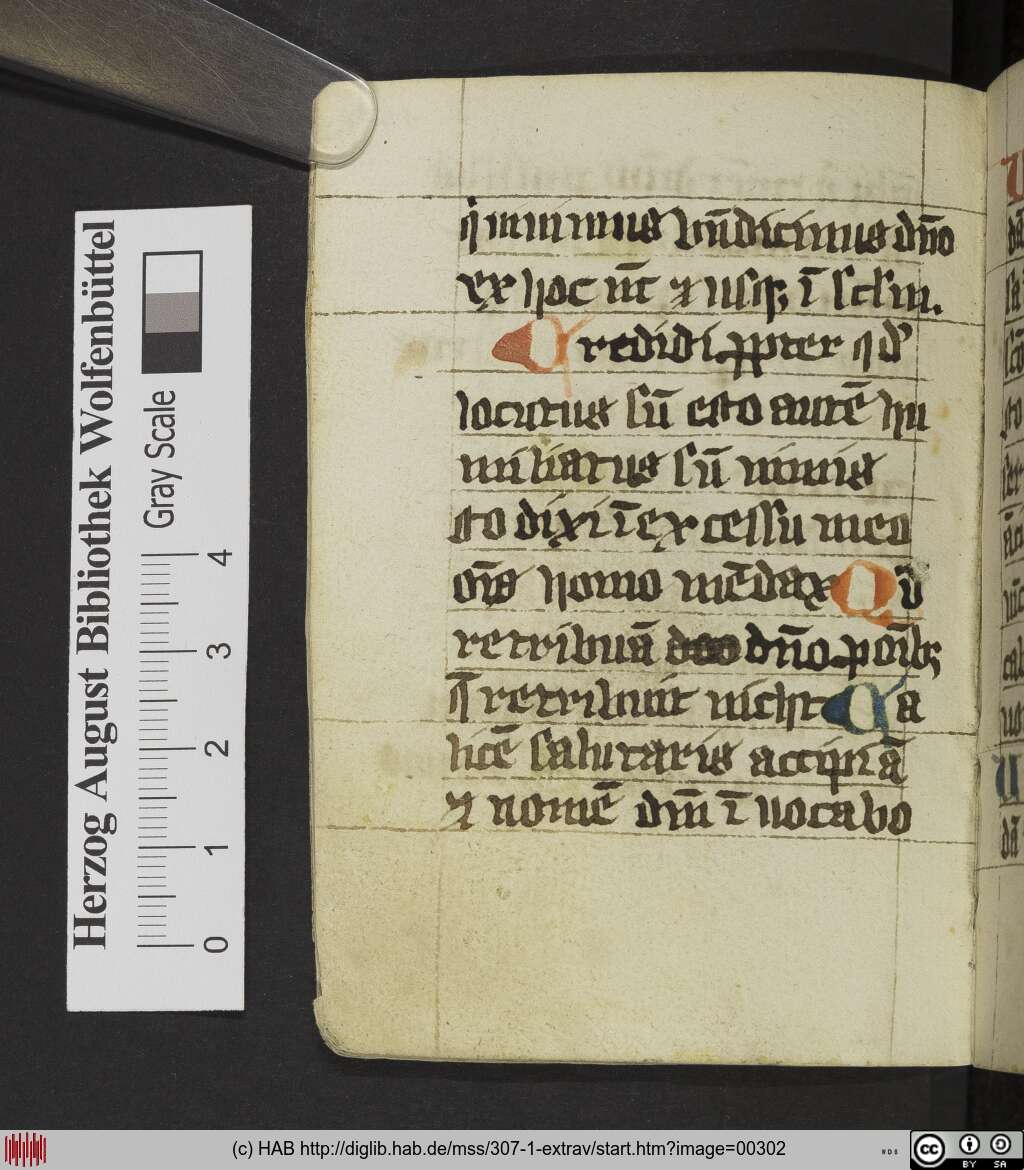 q̇ uiuimus bn̄dicimus dn̄o
ex hoc nc̄ ⁊ usqꝫ ī sclm.
Credidi ꝓpter qd̕
locutus sū ego autē hu
miliatus sū nimis
Ego dixi ī excessu meo
oīs homo mēdax Qͥd
retribuā deo dn̄o ꝓ oībꝫ
q̄ retribuit michi Ca
licē salutaris accipiā
⁊ nomē dn̄i īuocabo
Herzog August Bibliothek Wolfenbüttel
Gray Scale
0 1 2 3 4
(c) HAB http://diglib.hab.de/mss/307-1-extrav/start.htm?image=00302
WDB
cc BY SA